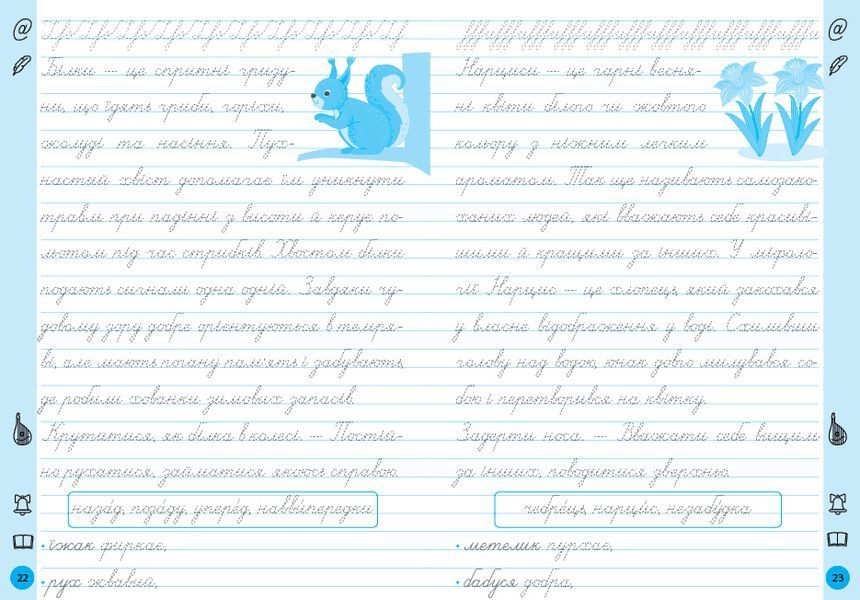 Білки — це спритні гризу-
ни, що їдять гриби, горіхи,
жолуді та насіння. Пух-
настий хвіст допомагає їм уникнути
травм при падінні з висоти й керує по-
льотом під час стрибків. Хвостом білки
подають сигнали одна одній. Завдяки чу-
довому зору добре орієнтуються в темря-
ві, але мають погану пам'ять і забувають,
де робили схованки зимових запасів.
Крутитися, як білка в колесі. — Постій-
но рухатися, займатися якоюсь справою.
наза́д, поза́ду, упере́д, навви́передки
• їжак фиркає,
• рух жвавий,
22
Нарциси — це гарні весня-
ні квіти білого чи жовтого
кольору з ніжним легким
ароматом. Так ще називають самозако-
ханих людей, які вважають себе красиві-
шими й кращими за інших. У міфоло-
гії Нарцис — це хлопець, який закохався
у власне відображення у воді. Схиливши
голову над водою, юнак довго милувався со-
бою і перетворився на квітку.
Задерти носа. — Вважати себе вищим
за інших, поводитися зверхньо.
чебре́ць, нарци́с, незабу́дка
• метелик пурхає,
• бабуся добра,
23